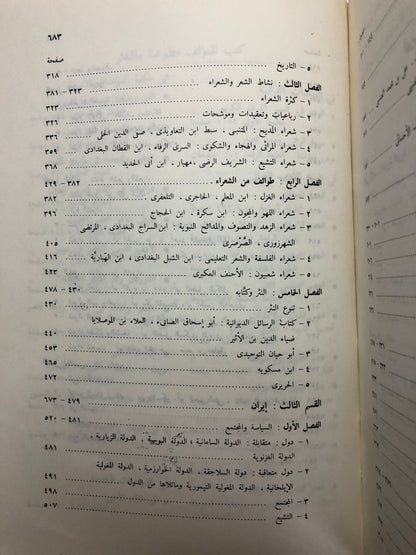 ٦٨٣
صفحة
٥ – التاريخ ٣١٨
الفصل الثالث : نشاط الشعر والشعراء ٣٢٣ – ٣٨١
١ – كثرة الشعراء ٣٢٣
٢ – رباعيات وتعقيدات وموشحات ٣٢٦
٣ – شعراء المديح : المتنبى ، سبط ابن التعاويذى ، صنى الدين الحلى ٣٣٦
٤ – شعراء المراثى والهجاء والشكوى : السرى الرفاء ، ابن القطان البغدادى ٣٥٩
٥ – شعراء التشيع : الشريف الرضى ، مهيار ، ابن أبى الحديد ٣٦٨
الفصل الرابع : طوائف من الشعراء ٣٨٢ – ٤٢٩
١ – شعراء الغزل : ابن المعلم ، الحاجرى ، التلعفرى ٣٨٢
٢ – شعراء اللهو والمجون : ابن سكرة ، ابن الحجاج ٣٩٦
٣ – شعراء الزهد والتصوف والمدائح النبوية : ابن السراج البغدادى ، المرتضى
الشهرزورى ، الصَّرْصرى ٤٠٥
٤ – شعراء الفلسفة والشعر التعليمى : ابن الشبل البغدادى ، ابن الهبّاريّة ٤١٦
٥ – شعراء شعبيون : الأحنف العكبرى ٤٢٣
الفصل الخامس : النثر وكتّابه ٤٣٠ – ٤٧٨
١ – تنوع النثر ٤٣٠
٢ – كتاب الرسائل الديوانية : أبو إسحاق الصابىء ، العلاء بن الموصلايا
ضياء الدين بن الأثير ٤٣٧
٣ – أبو حيان التوحيدى ٤٥٣
٤ – ابن مسكويه ٤٦٥
٥ – الحريرى ٤٧٢
القسم الثالث : إيران ٤٧٩ – ٦٧٣
الفصل الأول : السياسة والمجتمع ٤٨١ – ٥٢٠
١ – دول : متقابلة : الدولة السامانية ، الدولة البويهية ، الدولة الزيارية ،
الدولة الغزنوية ٤٨١
٢ – دول متعاقبة : دولة السلاجقة ، الدولة الخوارزمية ، الدولة المغولية
الإيلخانية ، الدولة المغولية التيمورية وماتلاها من الدول ٤٩١
٣ – المجتمع ٤٩٨
٤ – التشيع ٥٠٧